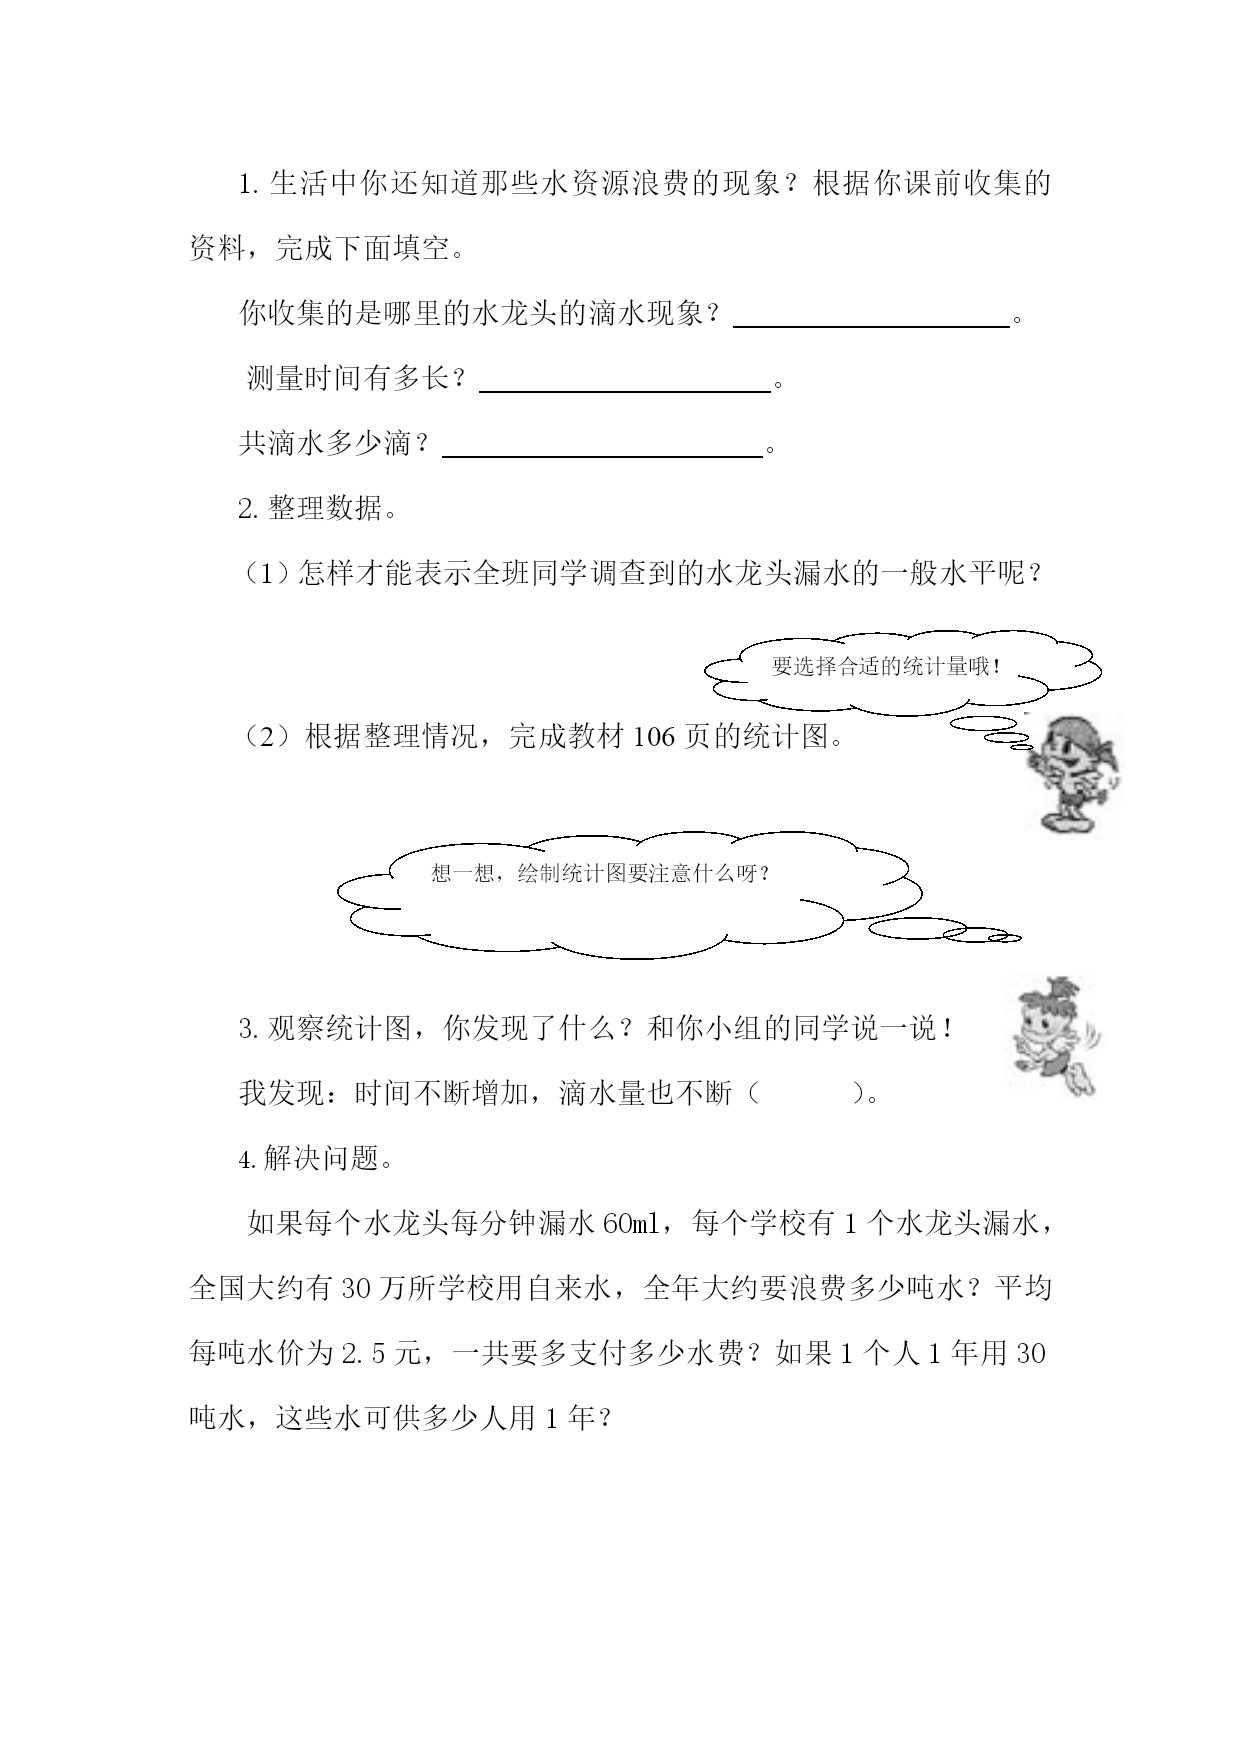 1. 生活中你还知道那些水资源浪费的现象？根据你课前收集的
资料，完成下面填空。
你收集的是哪里的水龙头的滴水现象？                    。
测量时间有多长？                    。
共滴水多少滴？                    。
2. 整理数据。
（1）怎样才能表示全班同学调查到的水龙头漏水的一般水平呢？
要选择合适的统计量哦！
（2）根据整理情况，完成教材 106 页的统计图。
想一想，绘制统计图要注意什么呀？
3. 观察统计图，你发现了什么？和你小组的同学说一说！
我发现：时间不断增加，滴水量也不断（      ）。
4. 解决问题。
如果每个水龙头每分钟漏水 60ml，每个学校有 1 个水龙头漏水，
全国大约有 30 万所学校用自来水，全年大约要浪费多少吨水？平均
每吨水价为 2.5 元，一共要多支付多少水费？如果 1 个人 1 年用 30
吨水，这些水可供多少人用 1 年？